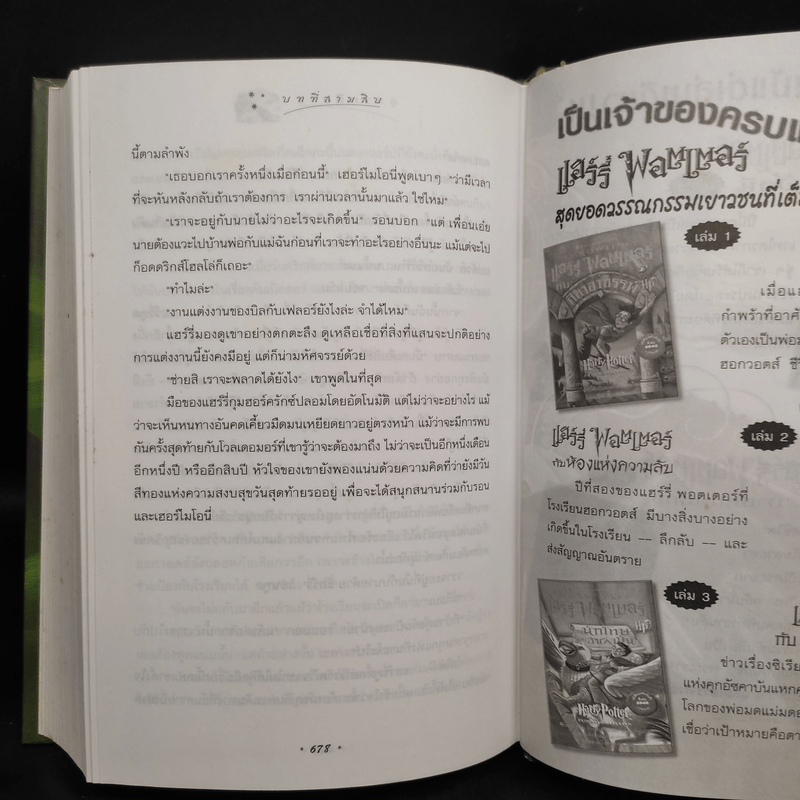 บทที่สามสิบ
นี้ตามลำพัง
"เธอบอกเราครั้งหนึ่งเมื่อก่อนนี้" เฮอร์ไมโอนี่พูดเบาๆ "ว่ามีเวลา
ที่จะหันหลังกลับถ้าเราต้องการ เราผ่านเวลานั้นมาแล้ว ใช่ไหม"
"เราจะอยู่กับนายไม่ว่าอะไรจะเกิดขึ้น" รอนบอก "แต่ เพื่อนเอ๋ย
นายต้องแวะไปบ้านพ่อกับแม่ฉันก่อนที่เราจะทำอะไรอย่างอื่นนะ แม้แต่จะไป
ก็อดดริกส์โฮลโล่ก็เถอะ"
"ทำไมล่ะ"
"งานแต่งงานของบิลกับเฟลอร์ยังไงล่ะ จำได้ไหม"
แฮร์รี่มองดูเขาอย่างตกตะลึง ดูเหลือเชื่อที่สิ่งที่แสนจะปกติอย่าง
การแต่งงานนี้ยังคงมีอยู่ แต่ก็น่ามหัศจรรย์ด้วย
"ช่ายสิ เราจะพลาดได้ยังไง" เขาพูดในที่สุด
มือของแฮร์รี่กุมฮอร์ครักซ์ปลอมโดยอัตโนมัติ แต่ไม่ว่าจะอย่างไร แม้
ว่าจะเห็นหนทางอันคดเคี้ยวมืดมนเหยียดยาวอยู่ตรงหน้า แม้ว่าจะมีการพบ
กันครั้งสุดท้ายกับโวลเดอมอร์ที่เขารู้ว่าจะต้องมาถึง ไม่ว่าจะเป็นอีกหนึ่งเดือน
อีกหนึ่งปี หรืออีกสิบปี หัวใจของเขายังพองแน่นด้วยความคิดที่ว่ายังมีวัน
สีทองแห่งความสงบสุขวันสุดท้ายรออยู่ เพื่อจะได้สนุกสนานร่วมกับรอน
และเฮอร์ไมโอนี่
678
เป็นเจ้าของครบ
แฮร์รี่ พอตเตอร์
สุดยอดวรรณกรรมเยาวชนที่เต็
เล่ม 1
เมื่อแ
กำพร้าที่อาศั
ตัวเองเป็นพ่อม
ฮอกวอตส์ ชี
Harry Potter
เล่ม 2
แฮร์รี่ พอตเตอร์
กับห้องแห่งความลับ
ปีที่สองของแฮร์รี่ พอตเตอร์ที่
โรงเรียนฮอกวอตส์ มีบางสิ่งบางอย่าง
เกิดขึ้นในโรงเรียน -- ลึกลับ -- และ
ส่งสัญญาณอันตราย
เล่ม 3
แฮร์รี่ พอตเตอร์
Harry Potter
กับ
ข่าวเรื่องซิเรีย
แห่งคุกอัซคาบันแหกค
โลกของพ่อมดแม่มด
เชื่อว่าเป้าหมายคือ